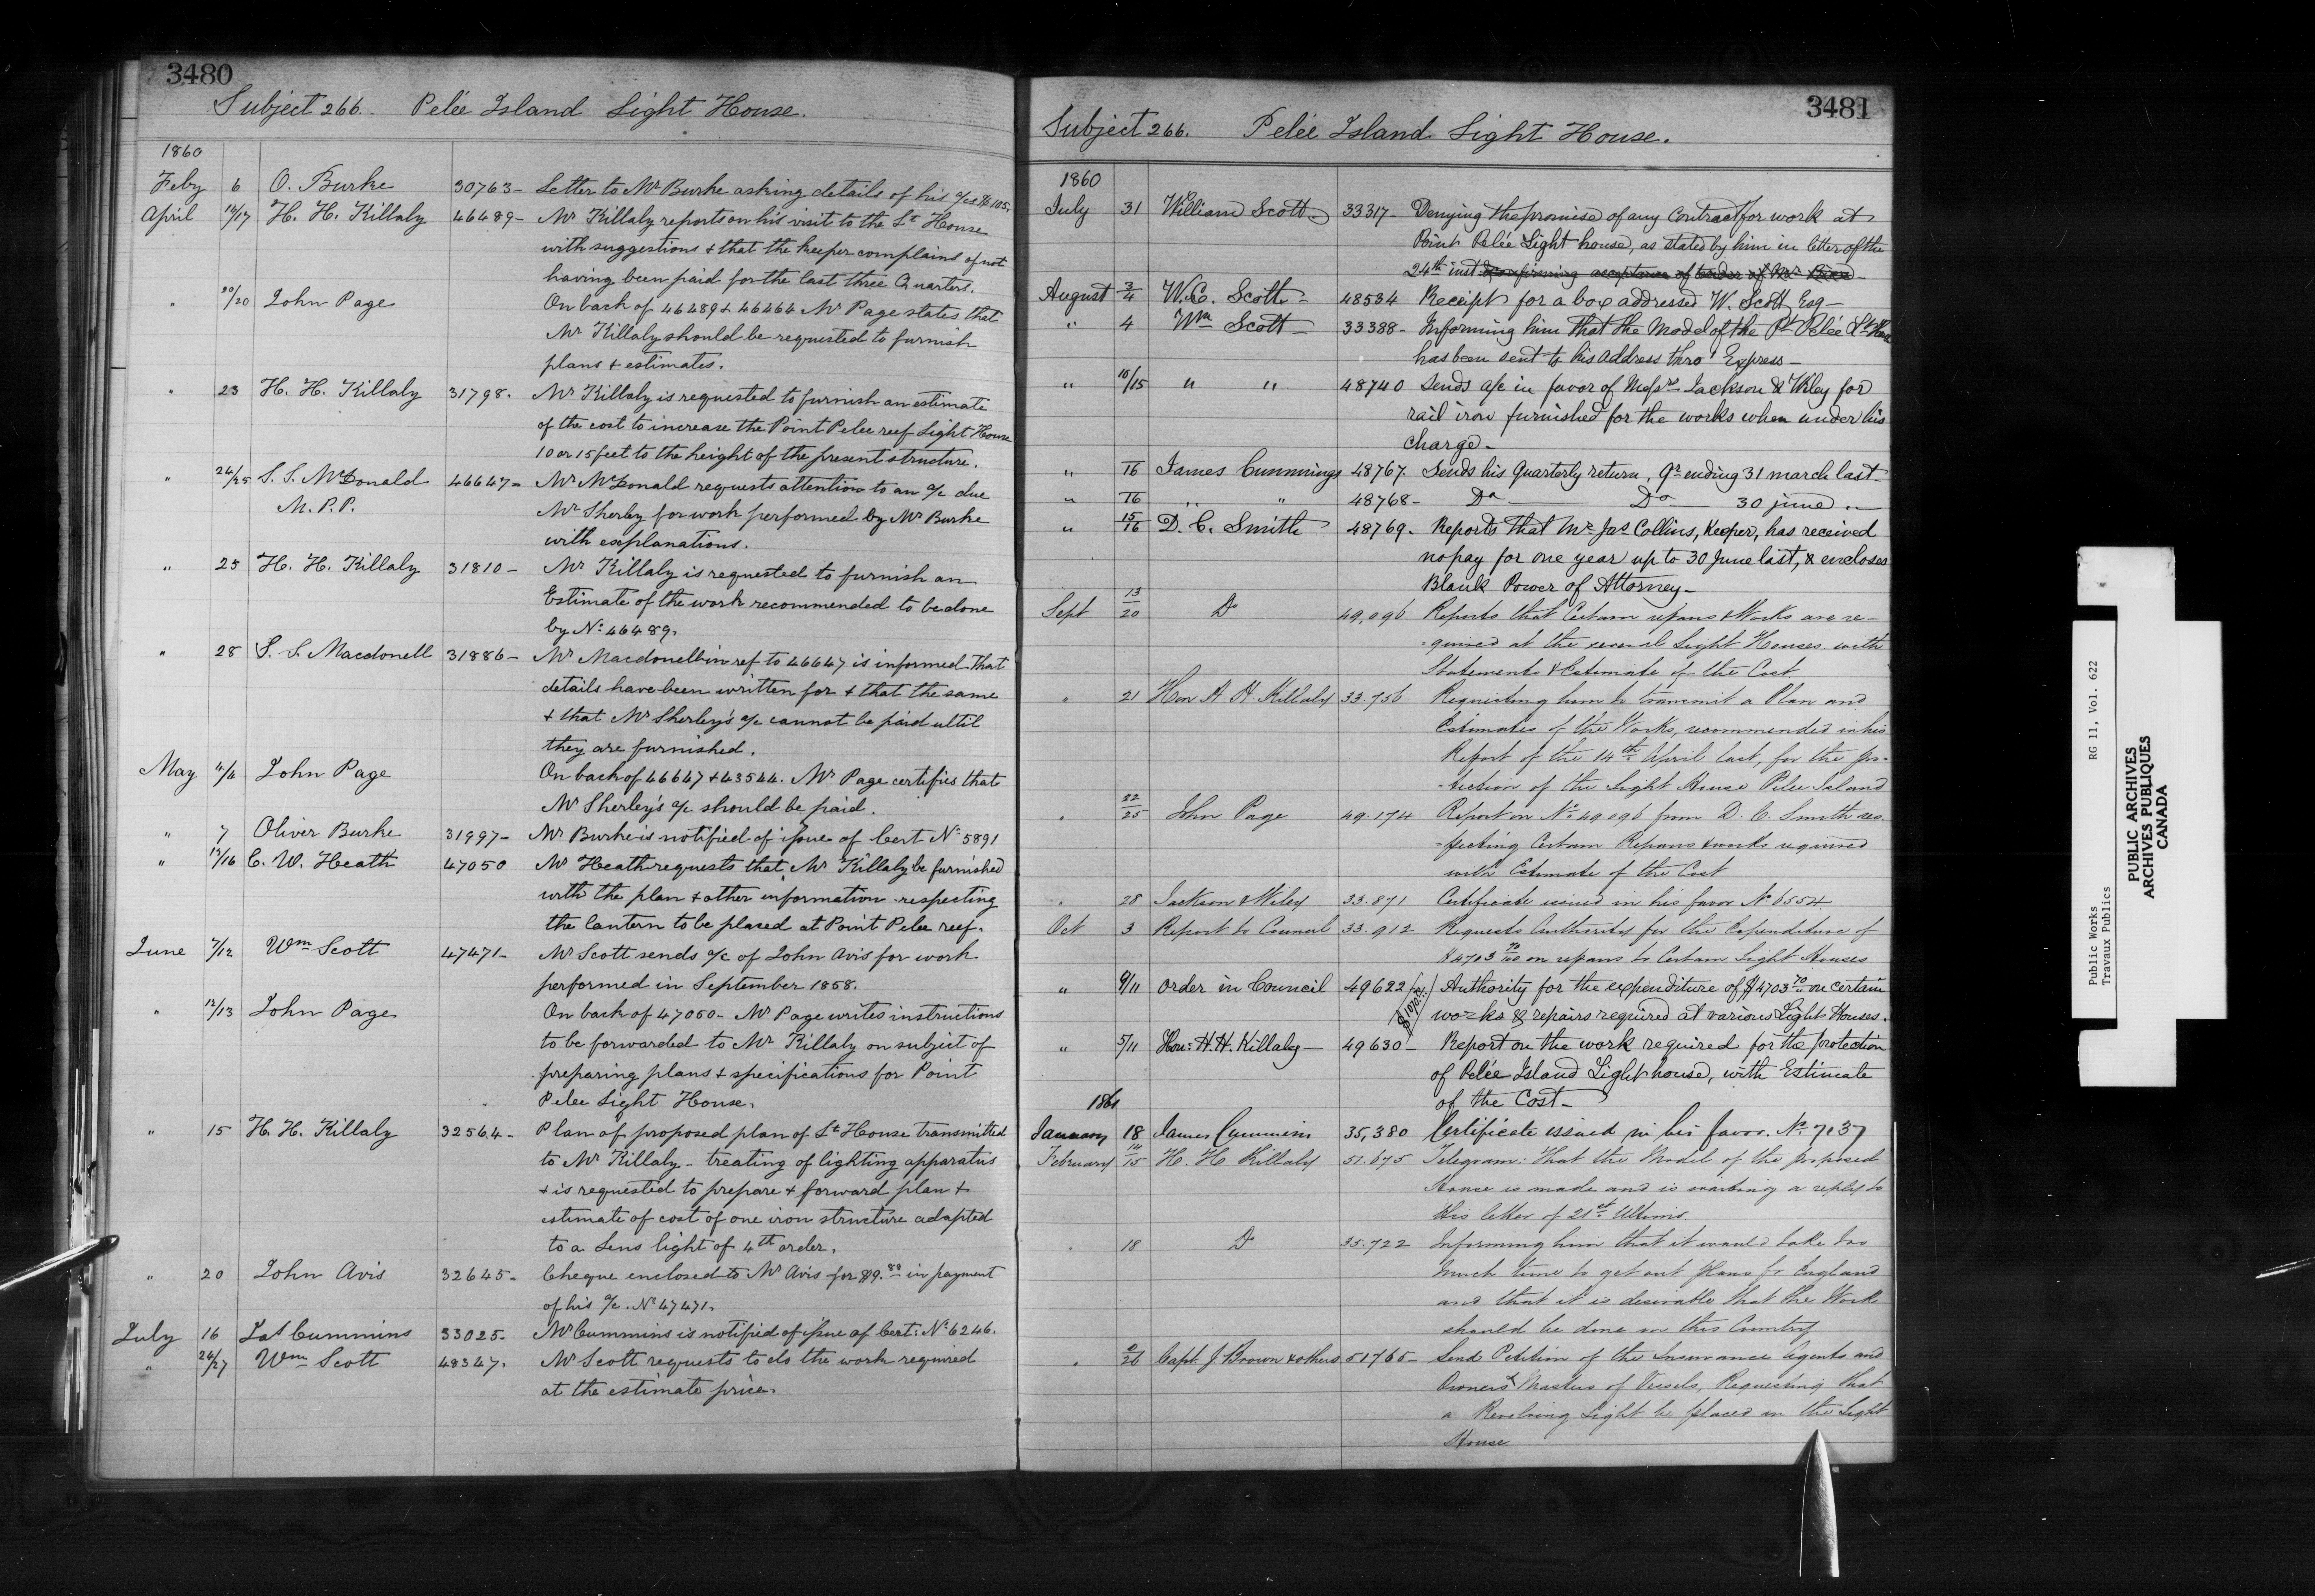 3480
Subject 266. Pelée Island Light House.
1860
Feby 6 O. Burke 30763- Letter to Mr Burke asking details of his a/cs
April 14/17 H. H. Killaly 46489- Mr Killaly reports on his visit to the Lt House
with suggestions & that the keeper complains of not
having been paid for the last three Quarters.
" 20/20 John Page On back of 46489 & 46464 Mr Page states that
Mr Killaly should be requested to furnish
plans & estimates.
" 23 H. H. Killaly 31798. Mr Killaly is requested to furnish an estimate
of the cost to increase the Point Pelee reef Light House
10 or 15 feet to the height of the present structure.
" 24/25 S. S. McDonald 46647- Mr McDonald requests attention to an a/c due
M. P. P. Mr Sherley for work performed by Mr Burke
with explanations.
" 25 H. H. Killaly 31810- Mr Killaly is requested to furnish an
Estimate of the work recommended to be done
by No 46489.
" 28 S. S. Macdonell 31886- Mr Macdonell in ref to 46647 is informed that
details have been written for & that the same
& that Mr Sherley's a/c cannot be paid until
they are furnished.
May 4/4 John Page On back of 46647 & 43544. Mr Page certifies that
Mr Sherley's a/c should be paid.
" 7 Oliver Burke 31997- Mr Burke is notified of issue of Cert No 5891
" 12/16 C. W. Heath 47050 Mr Heath requests that Mr Killaly be furnished
with the plan & other information respecting
the lantern to be placed at Point Pelee reef.
June 7/12 Wm Scott 47471- Mr Scott sends a/c of John Avis for work
performed in September 1858.
" 12/13 John Page On back of 47050- Mr Page writes instructions
to be forwarded to Mr Killaly on subject of
preparing plans & specifications for Point
Pelee Light House.
" 15 H. H. Killaly 32564- Plan of proposed plan of Lt House transmitted
to Mr Killaly - treating of lighting apparatus
& is requested to prepare & forward plan &
estimate of cost of one iron structure adapted
to a Lens light of 4th order.
" 20 John Avis 32645- Cheque enclosed to Mr Avis for $9.88 in payment
of his a/c. No 47471.
July 16 Jas Cummins 33025- Mr Cummins is notified of issue of Cert: No 6246.
" 24/27 Wm Scott 48347. Mr Scott requests to do the work required
at the estimate price.
3481
Subject 266. Pelée Island Light House.
1860
July 31 William Scott 33317- Denying the promise of any Contract for work at
Point Pelée Light house, as stated by him in letter of the
24th inst confirming acceptance of tender of Mr
August 3/4 W. C. Scott - 48534 Receipt for a box addressed W. Scott Esq -
" 4 Wm Scott - 33388- Informing him that the Model of the Pt Pelée Lt House
has been sent to his address thro' Express -
" 10/15 " " 48740 Sends a/c in favor of Messrs Jackson & Wiley for
rail iron furnished for the works when under his
charge -
" 16 James Cummings 48767. Sends his Quarterly return, Qr ending 31 march last -
" 16 " " 48768- Do Do 30 june "
" 15/16 D. C. Smith 48769. Reports that Mr Jas Collins, Keeper, has received
no pay for one year up to 30 June last, & encloses
Blank Power of Attorney -
Sept 13/20 Do 49,096 Reports that Certain repairs & Works are re-
-quired at the several Light Houses with
Statements & Estimate of the Cost
" 21 Hon H H Killaly 33.756 Requesting him to transmit a Plan and
Estimates of the Works, recommended in his
Report of the 14th April last, for the pro-
-tection of the Light House Pelee Island
" 22/25 John Page 49.174 Report on No 49.096 from D. C. Smith res-
-pecting Certain Repairs & works required
with Estimate of the Cost
" 28 Jackson & Wiley 33.871 Certificate issued in his favor No 6554
Oct 3 Report to Council 33.912 Requests Authority for the Expenditure of
$4703 70/100 on repairs to Certain Light Houses
" 9/11 Order in Council 49622 Authority for the expenditure of $4703 70 on certain
works & repairs required at various Light Houses.
" 5/11 Hon: H. H. Killaly - 49630- Report on the work required for the protection
of Pelée Island Light house, with Estimate
of the Cost -
1861
January 18 James Cummins 35,380 Certificate issued in his favor. No 7137
February 14/15 H. H Killaly 51.675 Telegram: That the Model of the proposed
House is made and is waiting a reply to
his letter of 21st Ultimo.
" 18 Do 35.722 Informing him that it would take too
much time to get out plans fr England
and that it is desirable that the Work
should be done in this Country
" 2/26 Capt J Brown & others 51765- Send Petition of the Insurance Agents and
Owners & Masters of Vessels, Requesting that
a Revolving Light be placed in the Light
House
Public Works RG 11, Vol. 622
Travaux Publics
PUBLIC ARCHIVES
ARCHIVES PUBLIQUES
CANADA